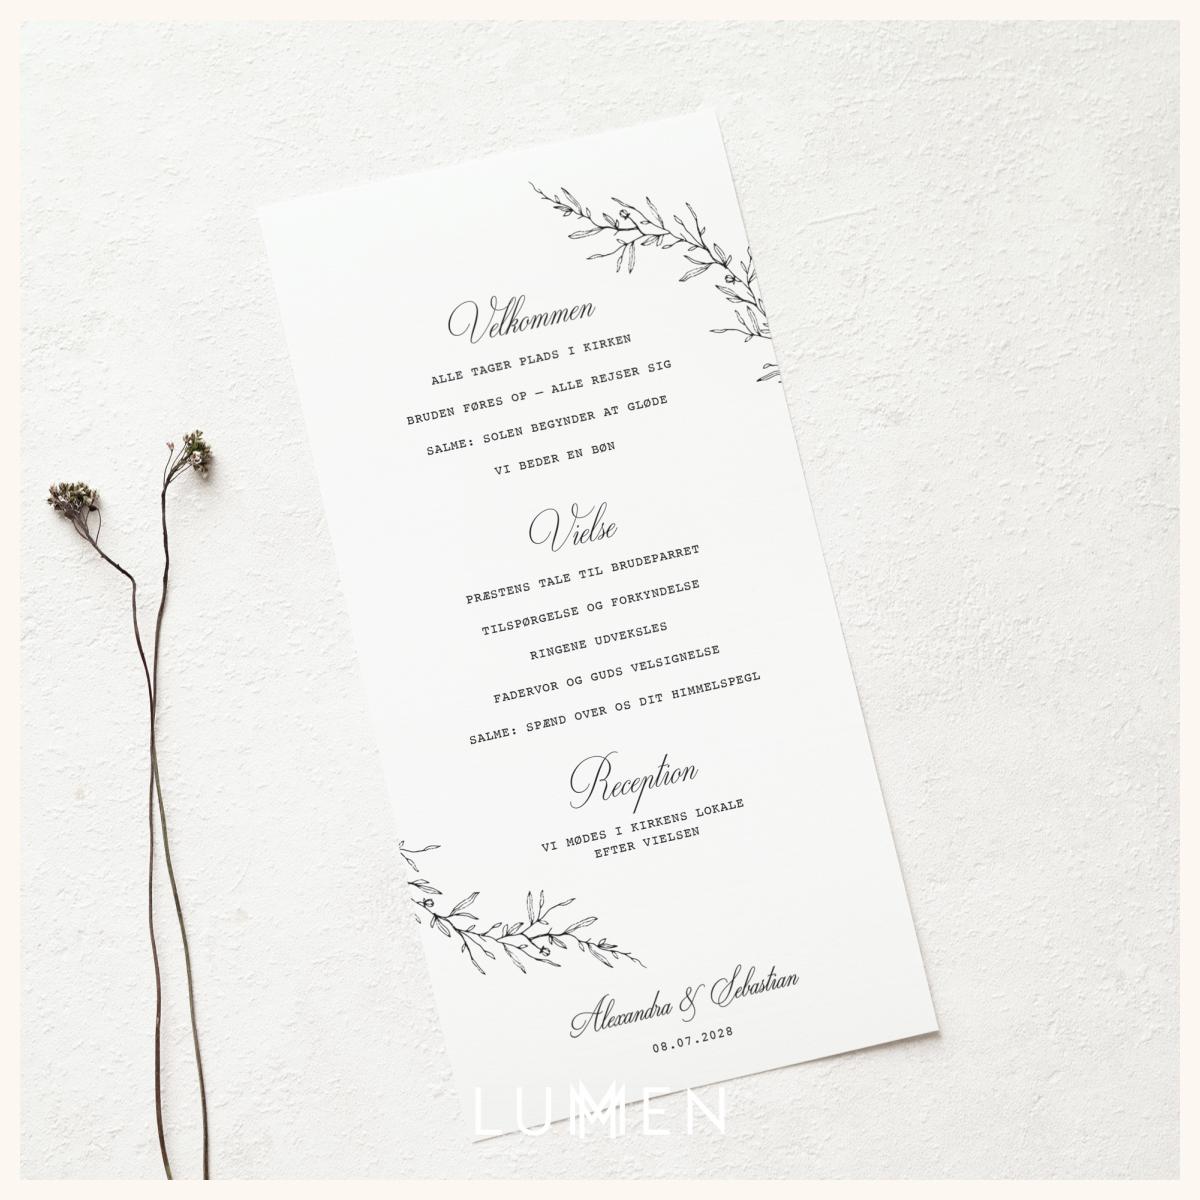 Velkommen
ALLE TAGER PLADS I KIRKEN
BRUDEN FØRES OP – ALLE REJSER SIG
SALME: SOLEN BEGYNDER AT GLØDE
VI BEDER EN BØN
Vielse
PRÆSTENS TALE TIL BRUDEPARRET
TILSPØRGELSE OG FORKYNDELSE
RINGENE UDVEKSLES
FADERVOR OG GUDS VELSIGNELSE
SALME: SPÆND OVER OS DIT HIMMELSPEGL
Reception
VI MØDES I KIRKENS LOKALE
EFTER VIELSEN
Alexandra & Sebastian
08.07.2028
LUMMEN